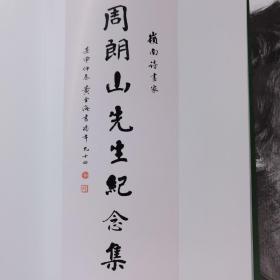 嶺南詩書家
周朗山先生紀念集
黃金海書時年九十四